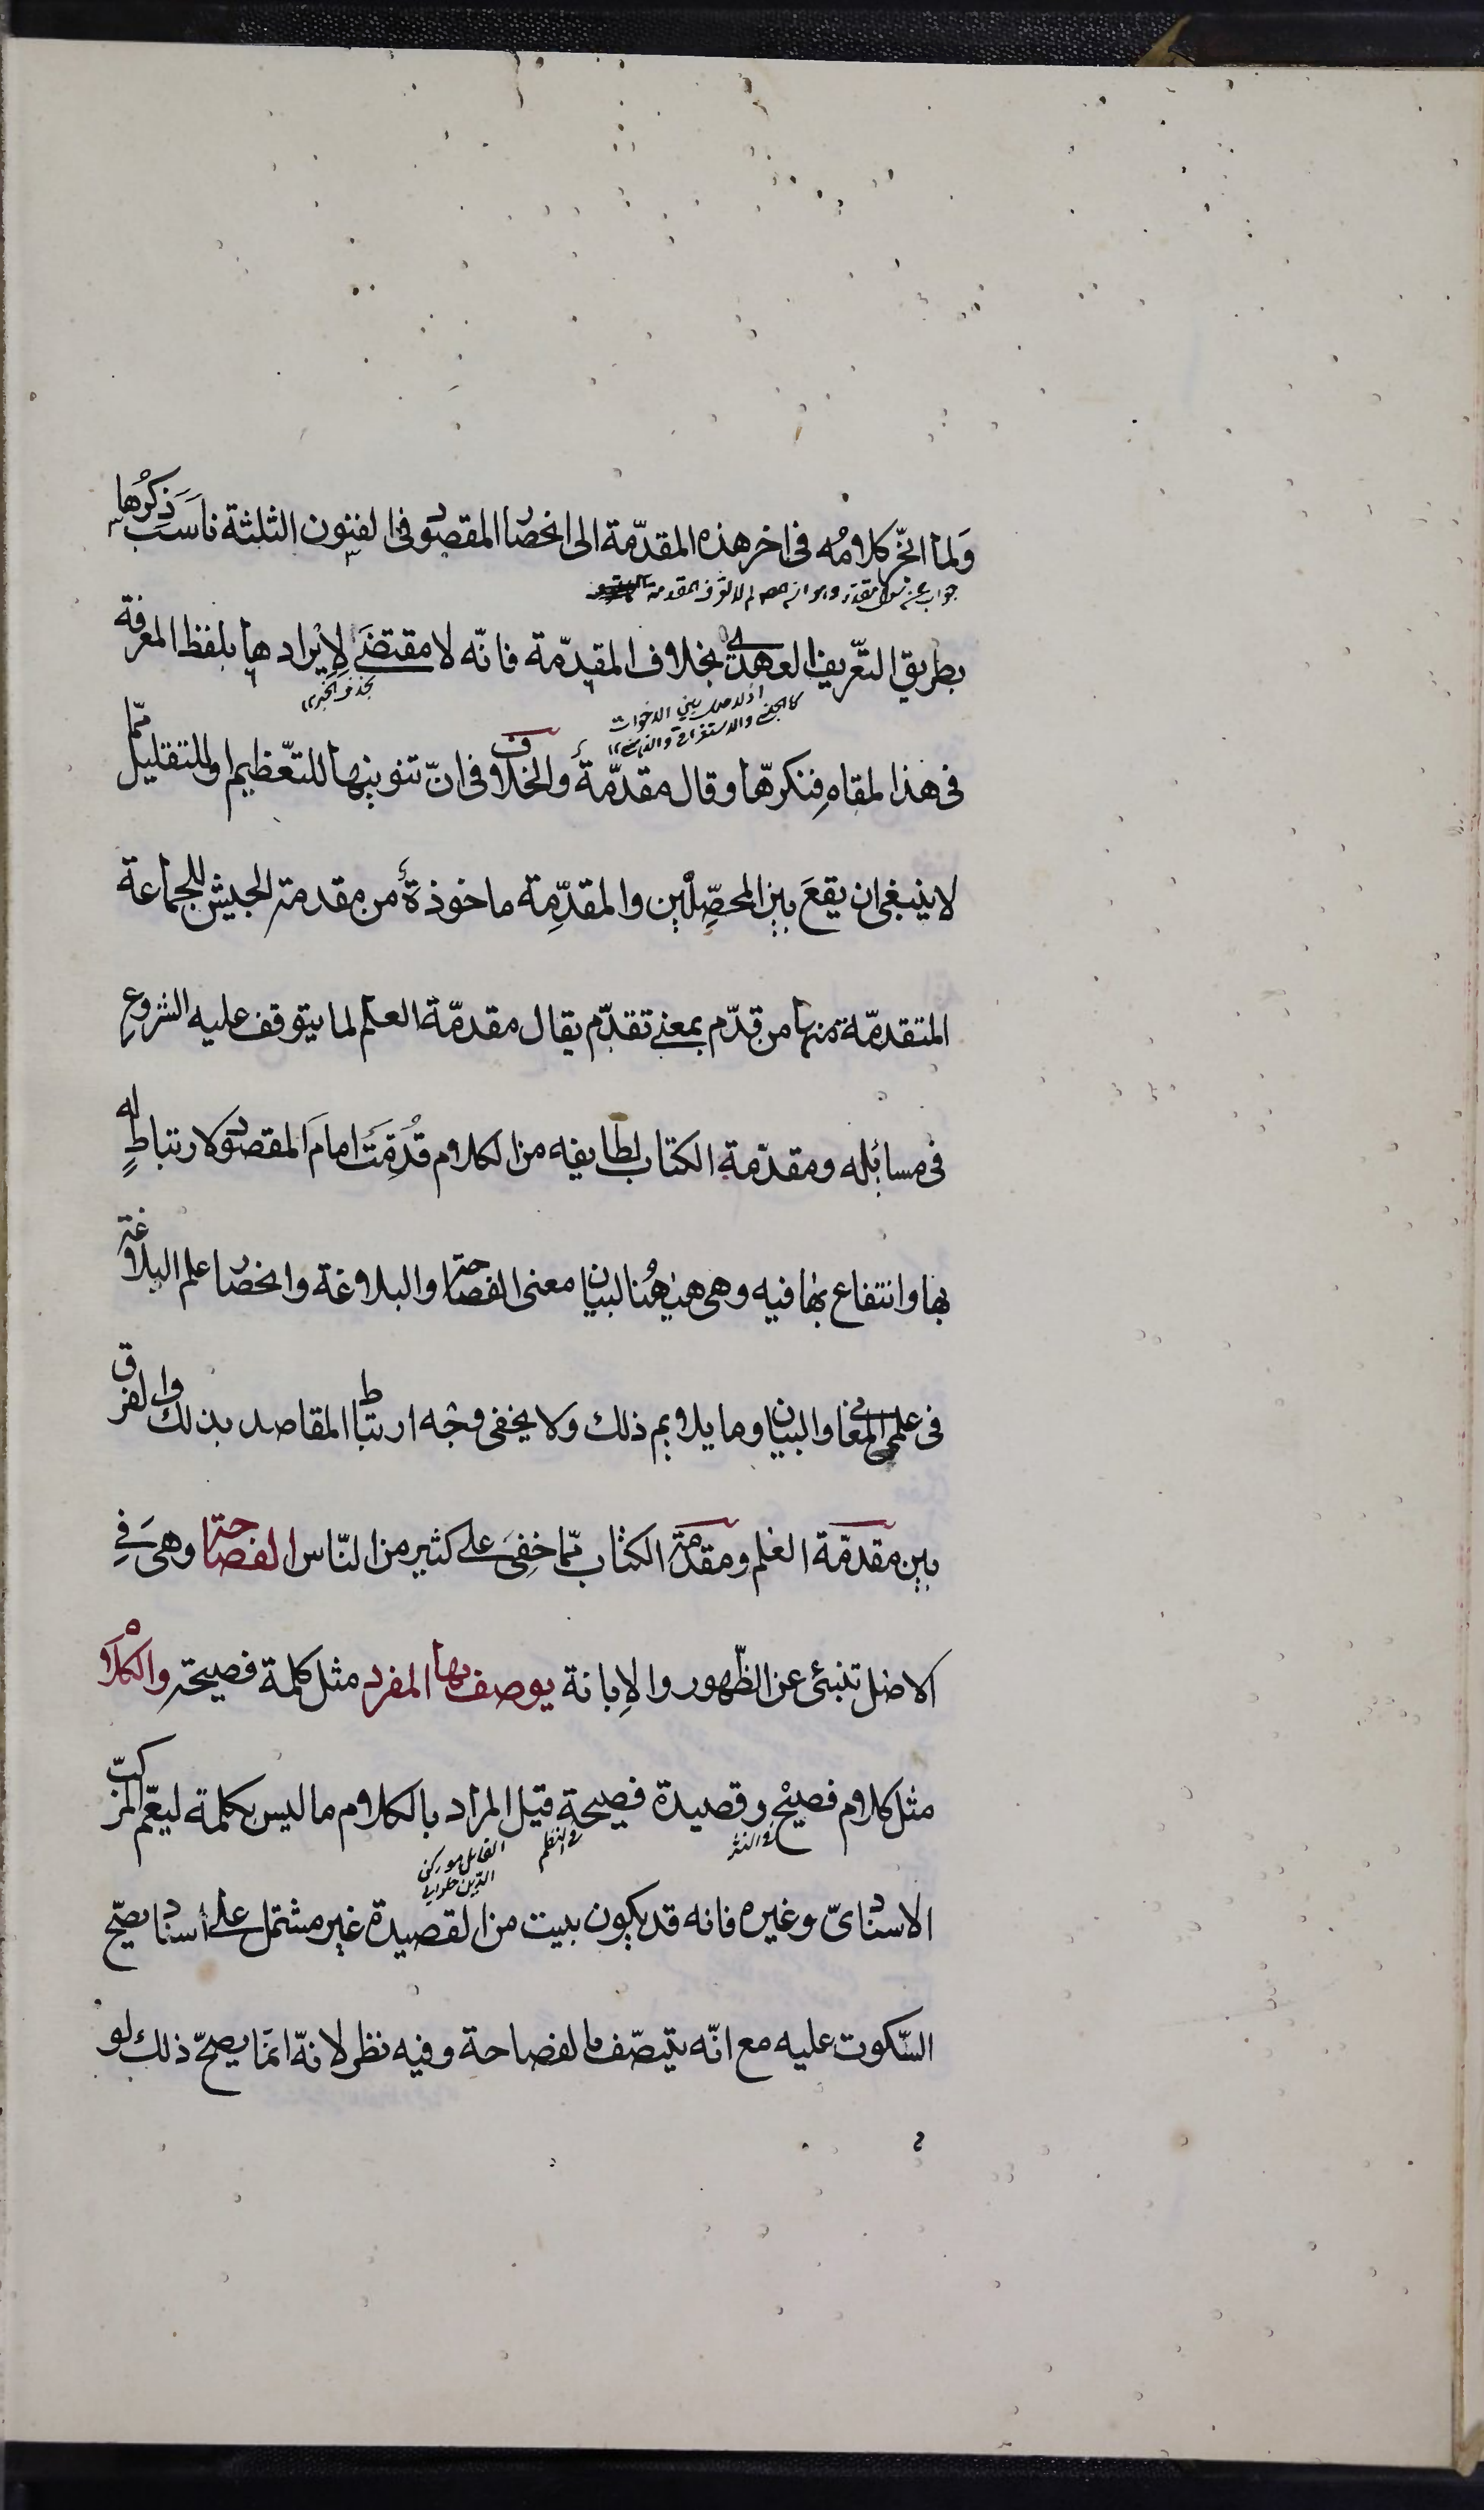 وَلما انجّر كلامُه فى اخر هذه المقدّمة الى انحصار المقصود فى الفنون الثلثة ناسَبَ ذِكرُها
جواب عن سؤال مقدّر وهو انه لم لم
بطريق التّعريف العهدى بخلاف المقدّمة فانّه لا مقتضَى لإيرادها بلفظ المعرفة
فى هذا المقام فنكرّها وقال مقدّمة والخلاف فى انّ تنوينها للتّعظيم او للتقليل ممّا
لا ينبغى ان يقعَ بين المحصّلين والمقدِّمة ماخوذة من مقدمة الجيش للجماعة
المتقدمّة منها من قدّم بمعنى تقدّم يقال مقدمّة العلم لما يتوقف عليه الشروع
فى مسائله ومقدّمة الكتاب لطايفه من الكلام قُدِّمَت امامَ المقصود لارتباطٍ له
بها وانتفاع بها فيه وهى هيهُنا لبيان معنى الفصاحة والبلاغة وانحصار علم البلاغة
فى علمى المعانى والبيان وما يلايم ذلك ولا يخفى وجه ارتباط المقاصد بذلك والفرق
بين مقدمّة العلم ومقدمّة الكتاب ممّا خفِىَ على كثير من النّاس الفصاحة وهى فِى
الاصل تنبئى عن الظّهور والإبانة يوصف بها المفرد مثل كلمة فصيحة والكلام
مثل كلام فصيح وقصيدة فصيحة قيل المراد بالكلام ما ليس بكلمة ليعّم المركّب
فى النثر فى النظم القايل مو ركن الدّين
الاسنادىّ وغيره فانه قد يكون بيت من القصيدة غير مشتمل على اسناد يصّح
السّكوت عليه مع انّه يتصّف بالفصاحة وفيه نظر لانّه انمّا يصحّ ذلك لو